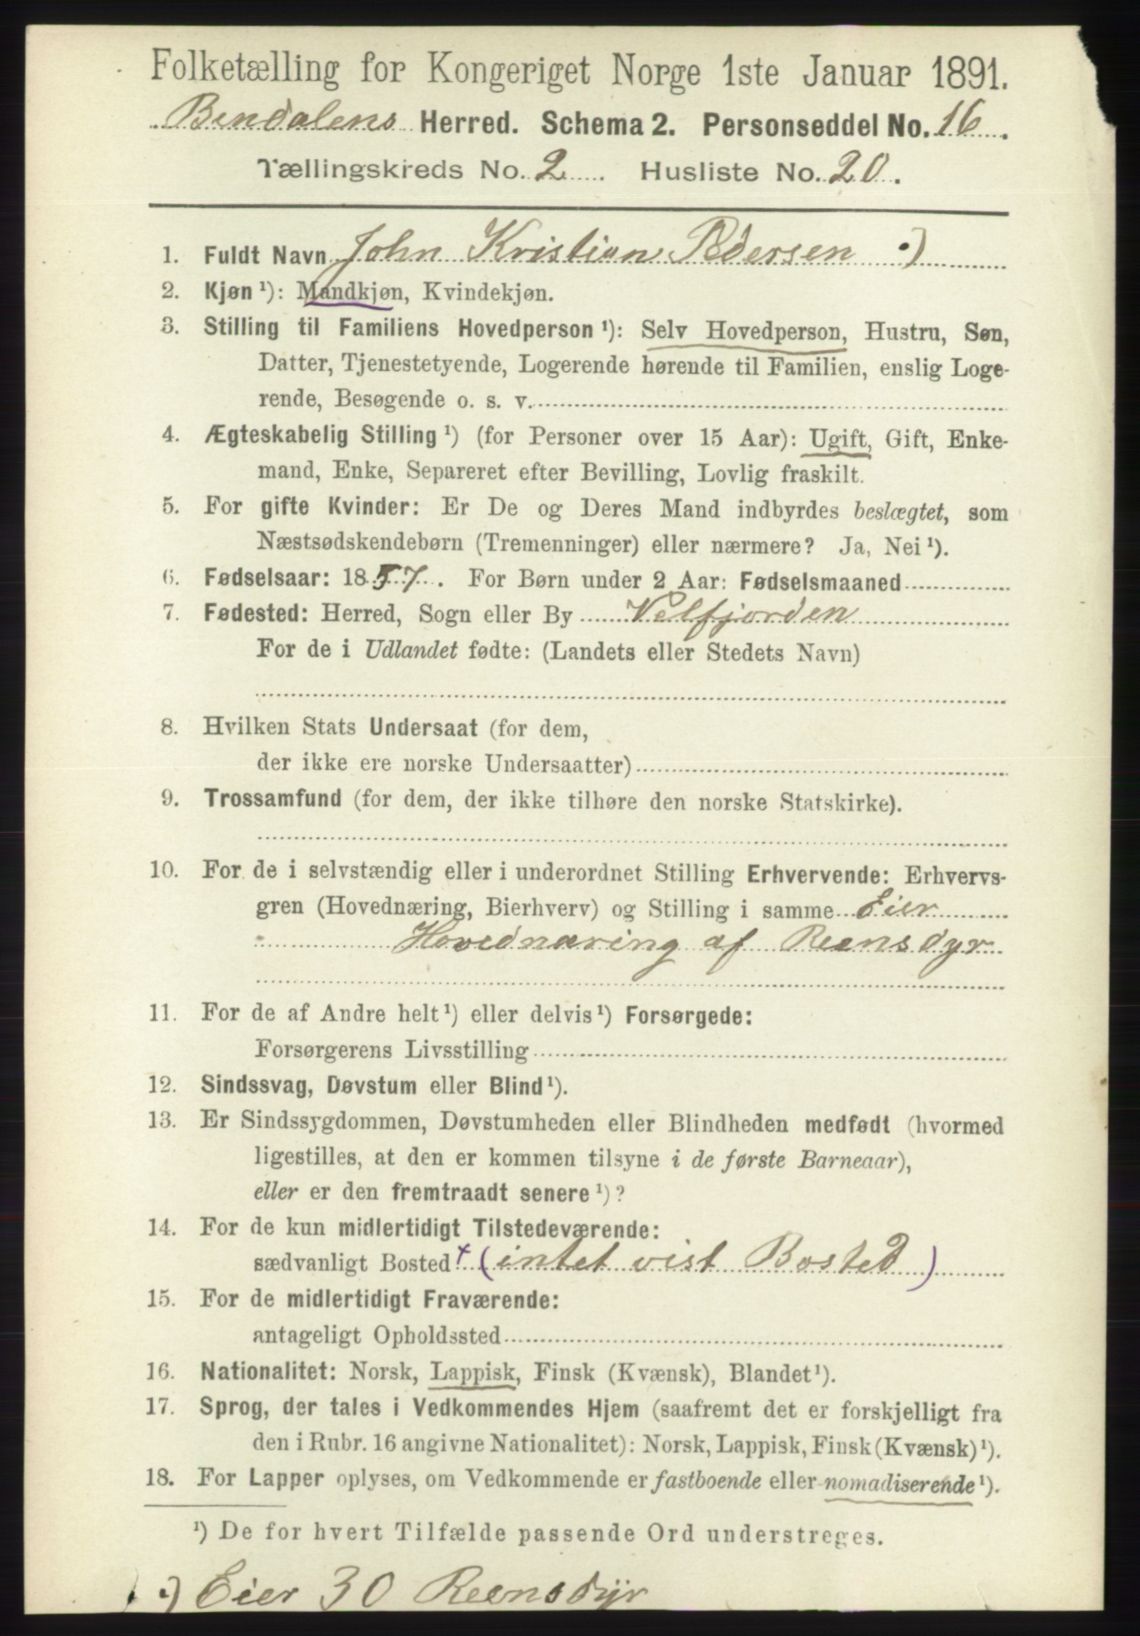 Folketælling for Kongeriget Norge 1ste Januar 1891.
Bindalens Herred. Schema 2. Personseddel No. 16.
Tællingskreds No. 2. Husliste No. 20.
1. Fuldt Navn John Kristian Pedersen •)
2. Kjøn ¹): Mandkjøn, Kvindekjøn.
3. Stilling til Familiens Hovedperson ¹): Selv Hovedperson, Hustru, Søn,
Datter, Tjenestetyende, Logerende hørende til Familien, enslig Loge-
rende, Besøgende o. s. v.
4. Ægteskabelig Stilling ¹) (for Personer over 15 Aar): Ugift, Gift, Enke-
mand, Enke, Separeret efter Bevilling, Lovlig fraskilt.
5. For gifte Kvinder: Er De og Deres Mand indbyrdes beslægtet, som
Næstsødskendebørn (Tremenninger) eller nærmere? Ja, Nei ¹).
6. Fødselsaar: 1857. For Børn under 2 Aar: Fødselsmaaned
7. Fødested: Herred, Sogn eller By Velfjorden
For de i Udlandet fødte: (Landets eller Stedets Navn)
8. Hvilken Stats Undersaat (for dem,
der ikke ere norske Undersaatter)
9. Trossamfund (for dem, der ikke tilhøre den norske Statskirke).
10. For de i selvstændig eller i underordnet Stilling Erhvervende: Erhvervs-
gren (Hovednæring, Bierhverv) og Stilling i samme Eier
Hovednæring af Reensdyr
11. For de af Andre helt ¹) eller delvis ¹) Forsørgede:
Forsørgerens Livsstilling
12. Sindssvag, Døvstum eller Blind ¹).
13. Er Sindssygdommen, Døvstumheden eller Blindheden medfødt (hvormed
ligestilles, at den er kommen tilsyne i de første Barneaar),
eller er den fremtraadt senere ¹)?
14. For de kun midlertidigt Tilstedeværende:
sædvanligt Bosted + (intet vist Bosted)
15. For de midlertidigt Fraværende:
antageligt Opholdssted
16. Nationalitet: Norsk, Lappisk, Finsk (Kvænsk), Blandet ¹).
17. Sprog, der tales i Vedkommendes Hjem (saafremt det er forskjelligt fra
den i Rubr. 16 angivne Nationalitet): Norsk, Lappisk, Finsk (Kvænsk) ¹).
18. For Lapper oplyses, om Vedkommende er fastboende eller nomadiserende ¹).
¹) De for hvert Tilfælde passende Ord understreges.
•) Eier 30 Reensdyr